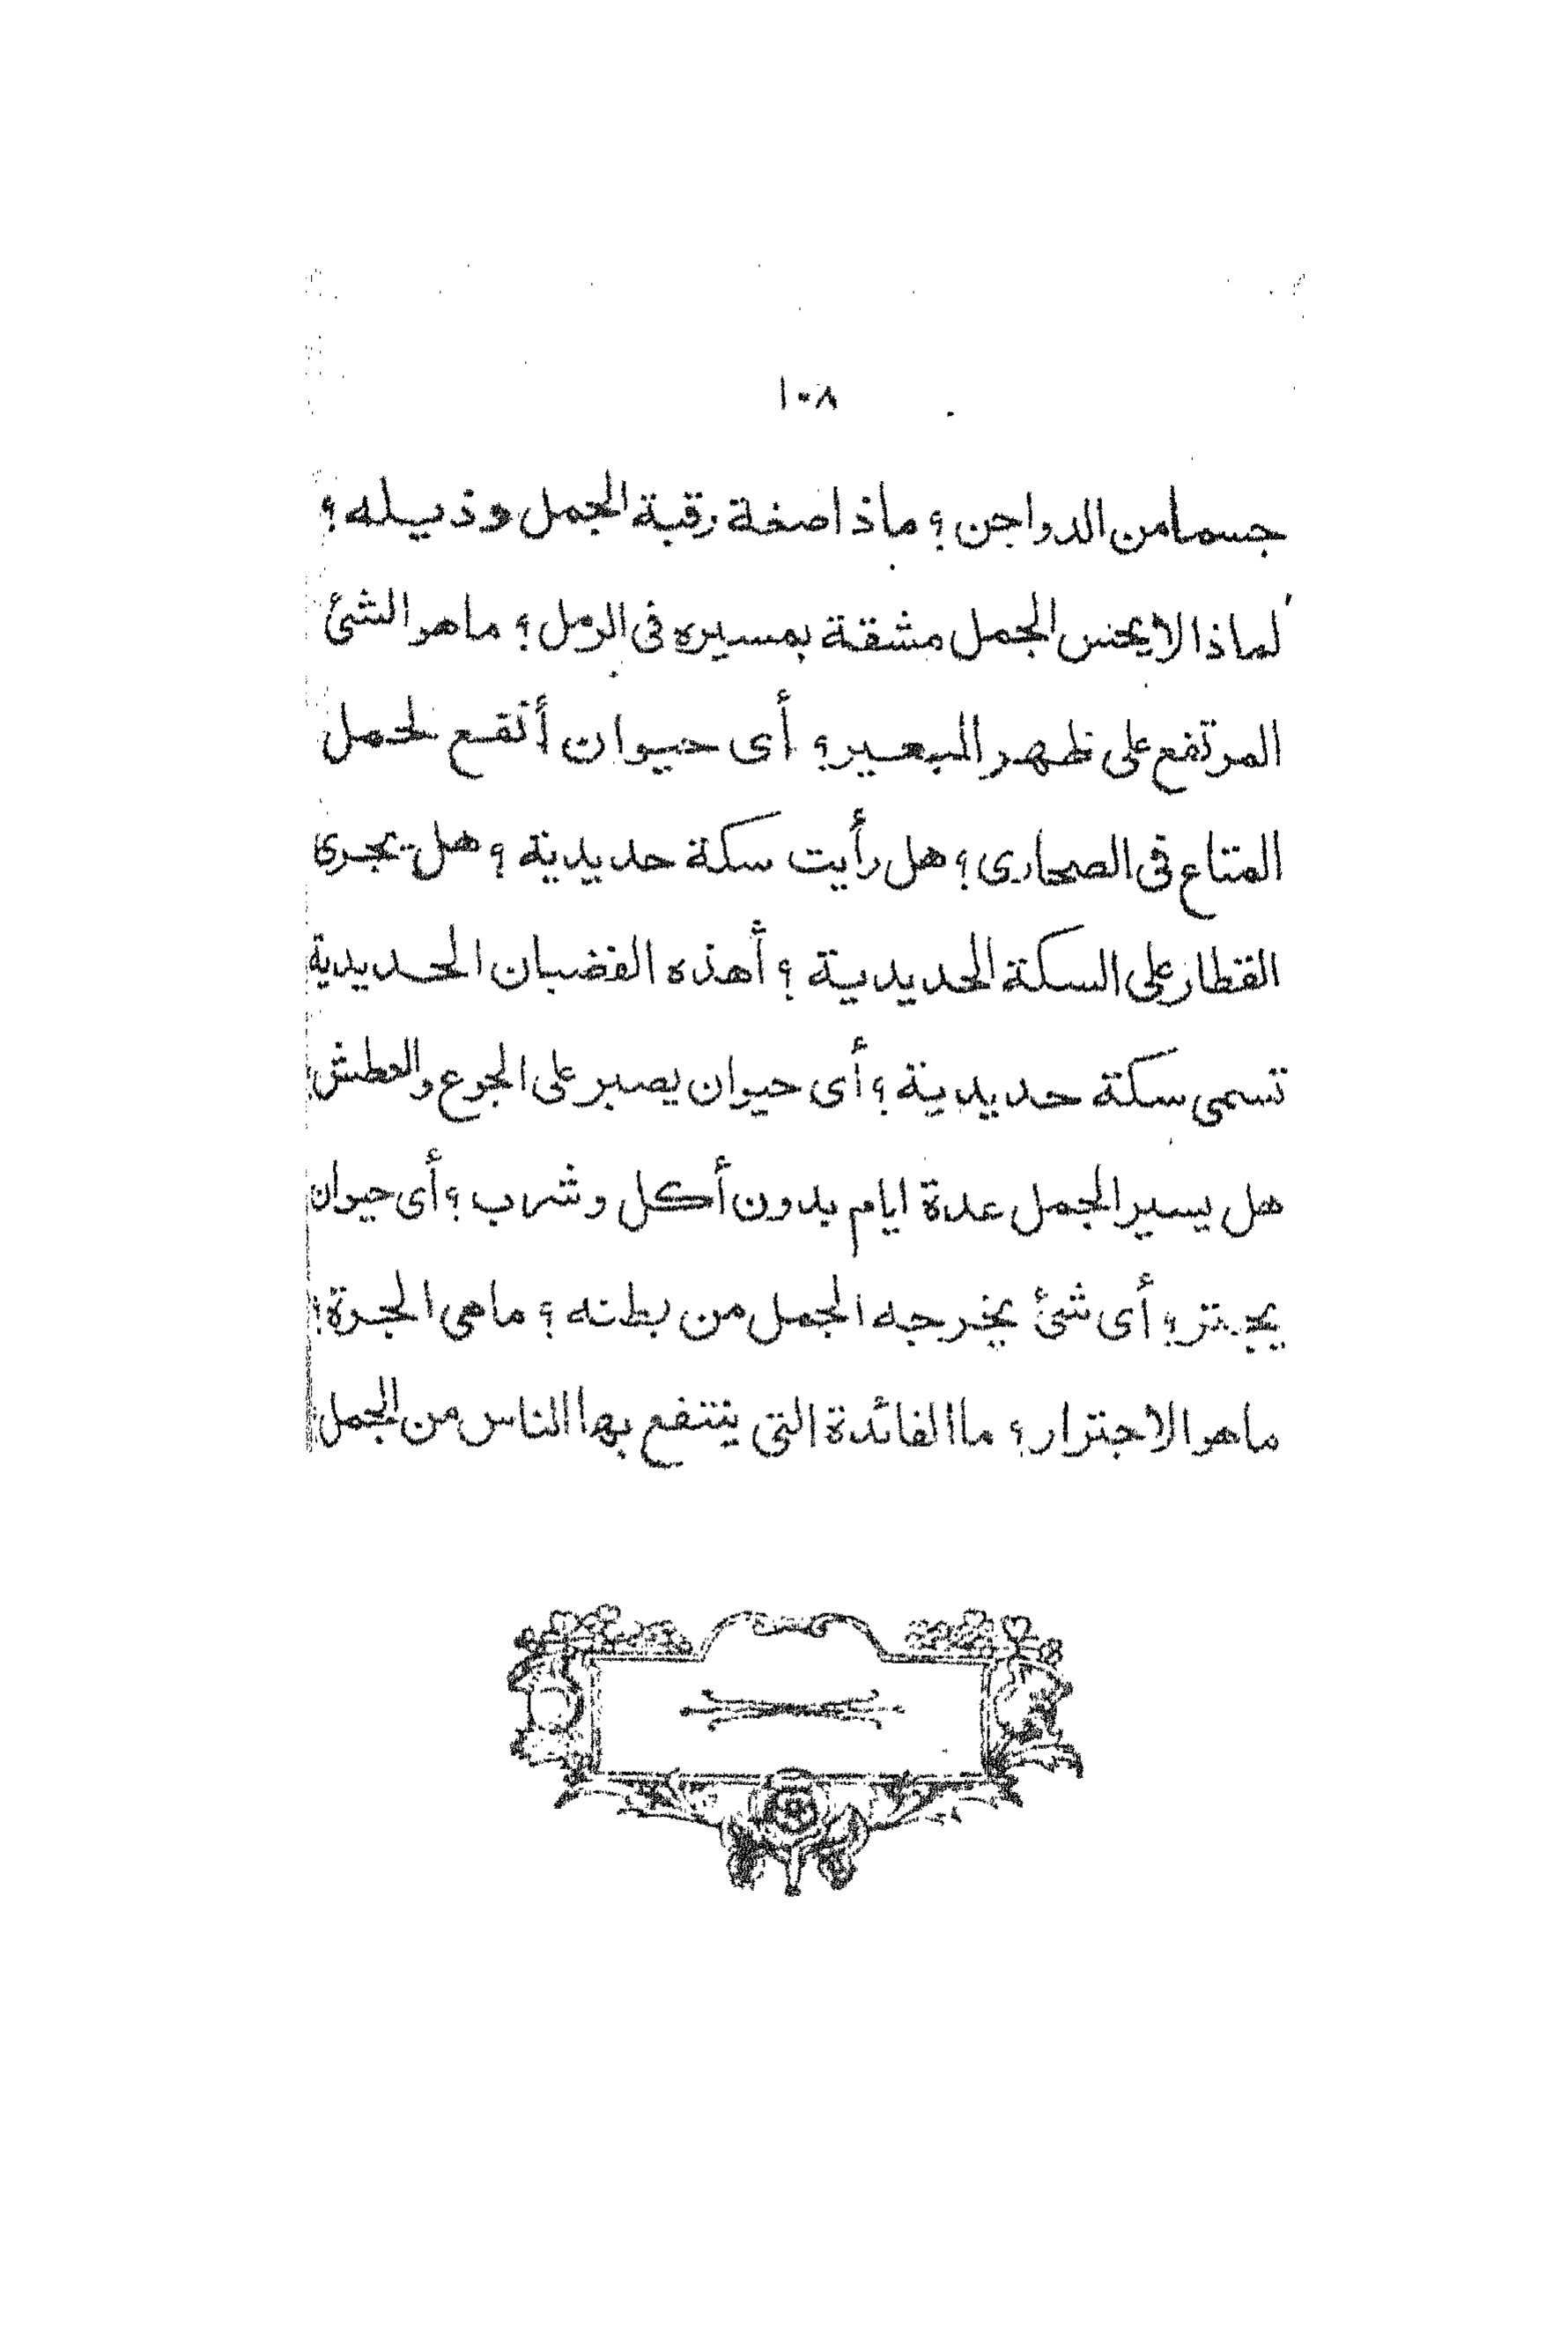 ١٠٨
جسما من الدواجن ؟ ماذا صفة رقبة الجمل وذيله ؟
لماذا لا يحس الجمل مشقة بمسيره فى الرمل ؟ ما هو الشئ
المرتفع على ظهر البعير ؟ أى حيوان أنفع لحمل
المتاع فى الصحارى ؟ هل رأيت سكة حديدية ؟ هل يجرى
القطار على السكة الحديدية ؟ أهذه القضبان الحديدية
تسمى سكة حديدية ؟ أى حيوان يصبر على الجوع والعطش
هل يسير الجمل عدة ايام بدون أكل وشرب ؟ أى حيوان
يجتر ؟ أى شئ يخرجه الجمل من بطنه ؟ ماهى الجرة ؟
ماهو الاجترار ؟ ما الفائدة التى ينتفع بها الناس من الجمل